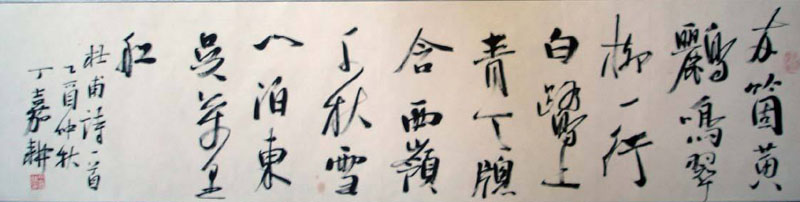 兩箇黄
鸝鳴翠
柳一行
白鷺上
青天牕
含西嶺
千秋雪
門泊東
吳萬里
船
杜甫詩一首
乙酉仲秋
丁嘉耕